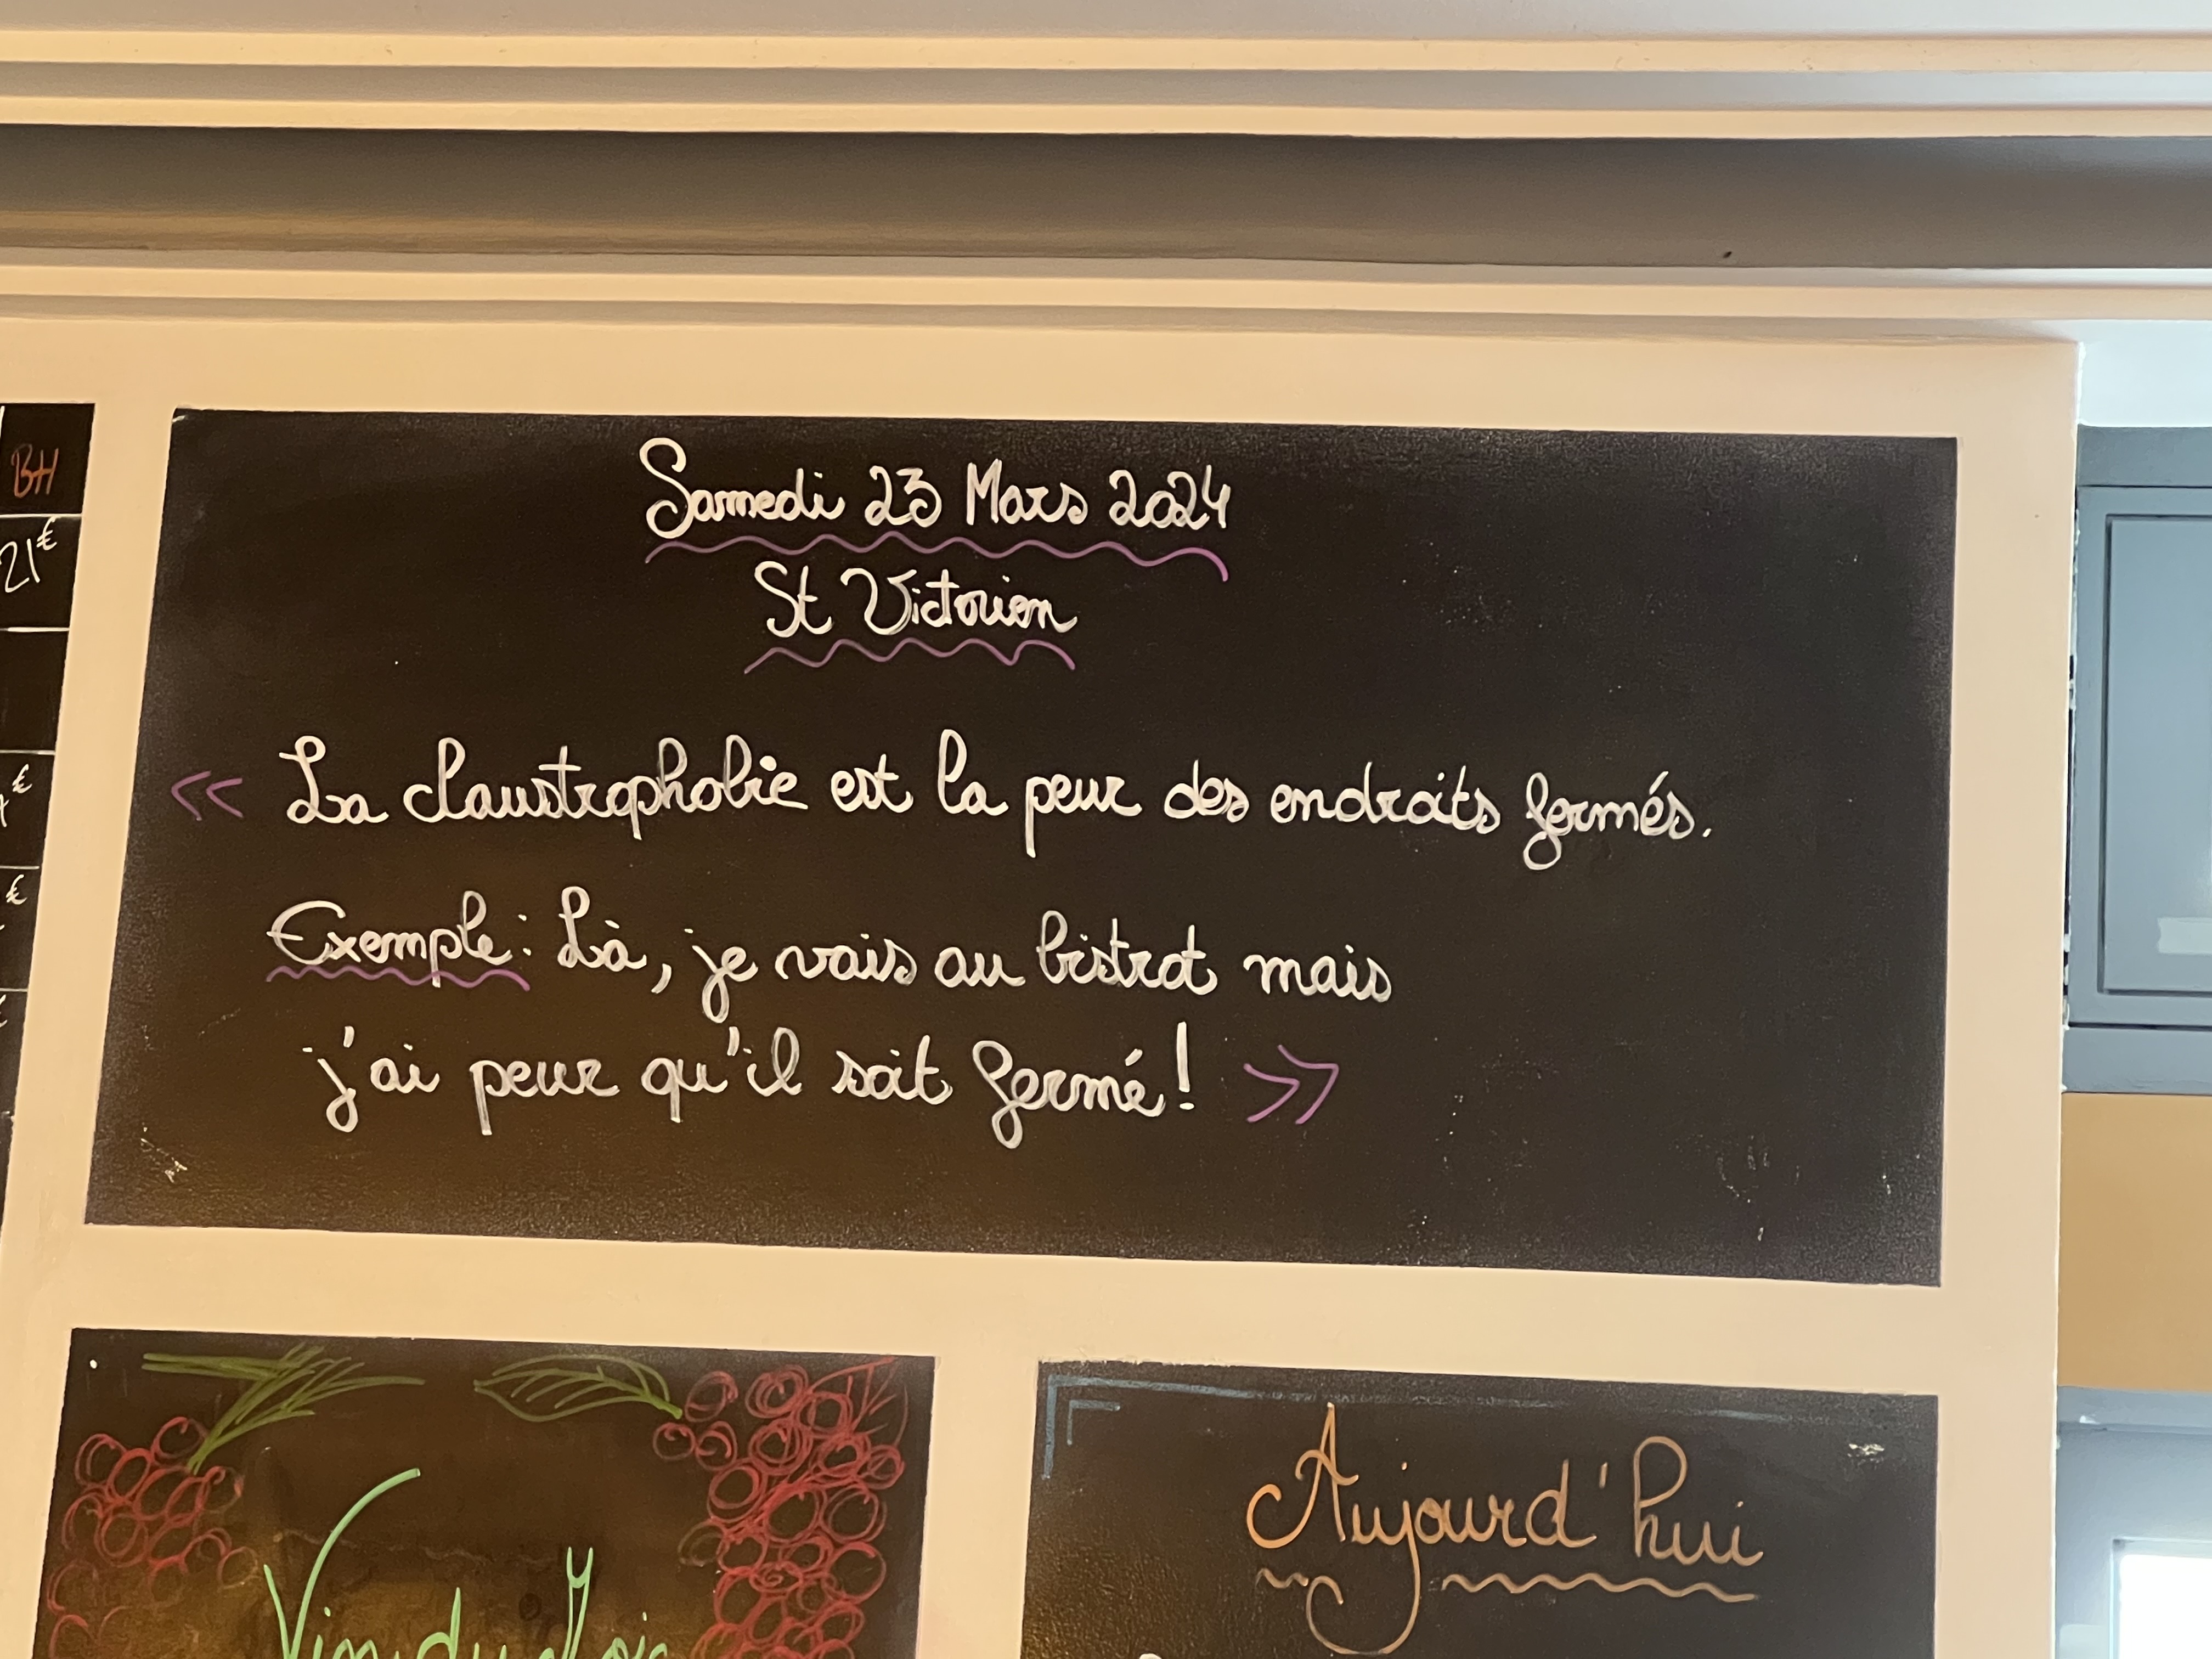 BH
21€
€
€
€
Samedi 23 Mars 2024
St Victorien
« La claustrophobie est la peur des endroits fermés.
Exemple : Là, je vais au bistrot mais
j'ai peur qu'il soit fermé ! »
Vin du Mois
Aujourd'hui